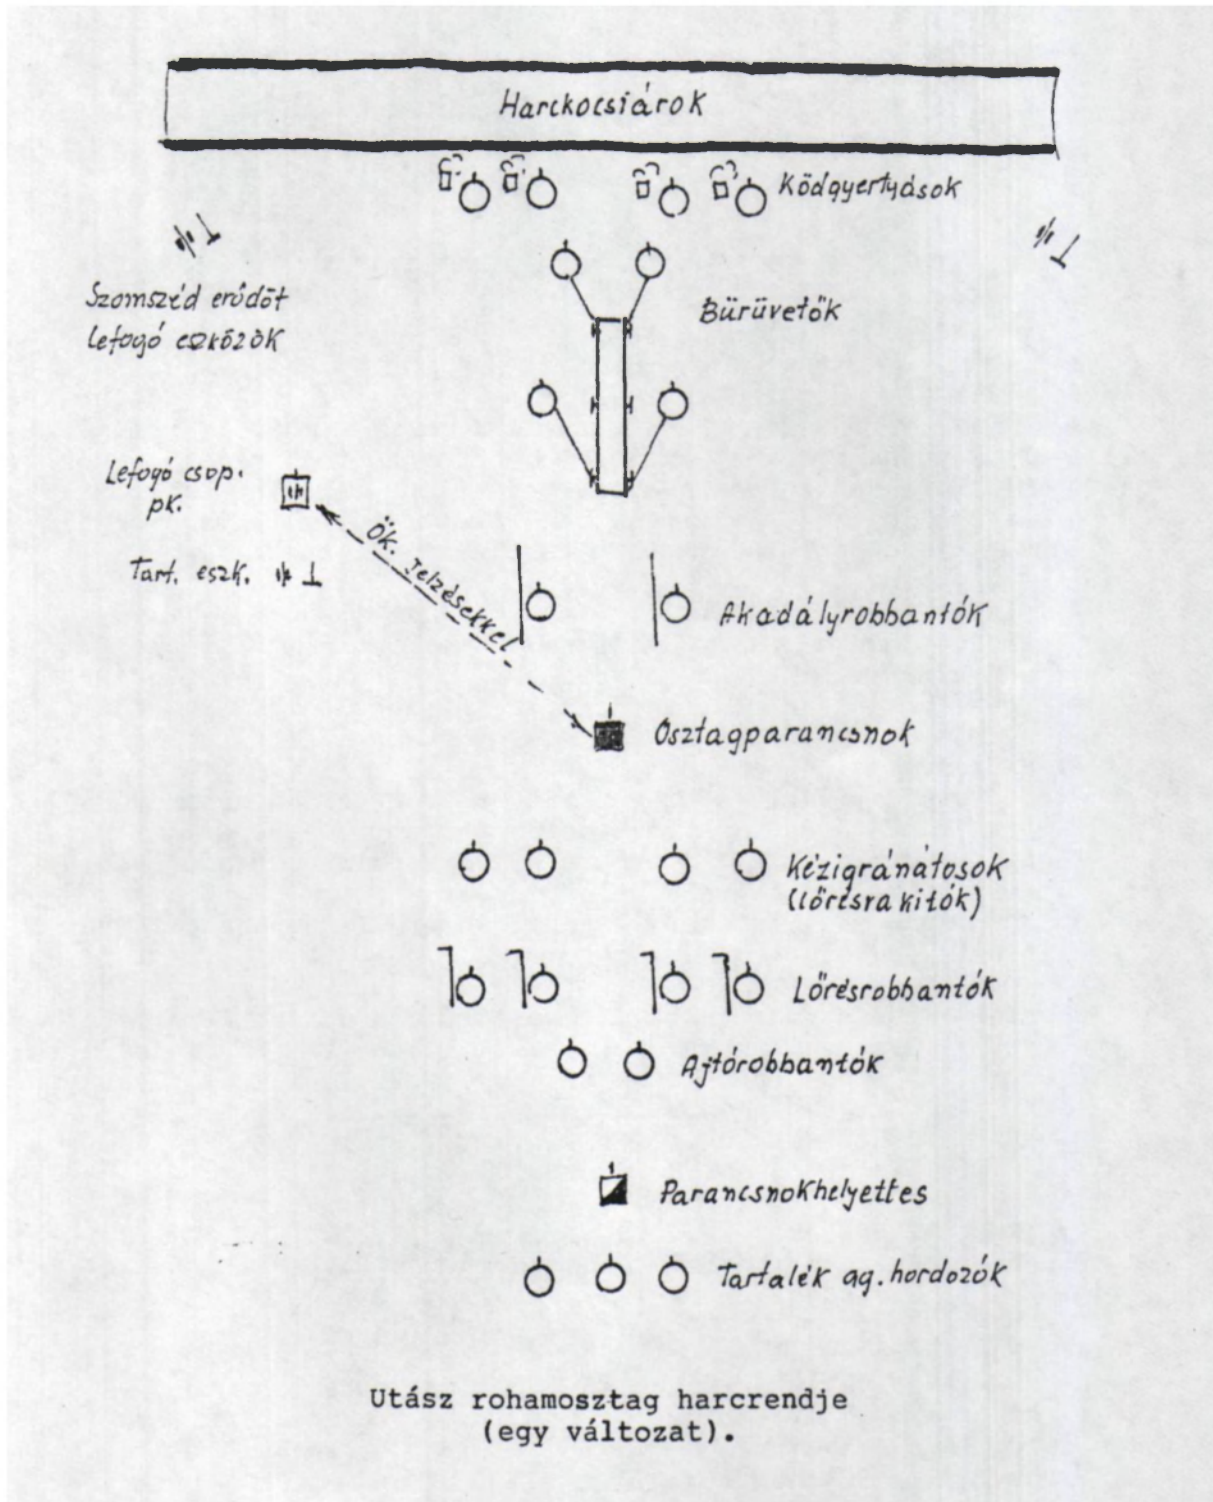 Harckocsiárok
Ködgyertyások
Szomszéd erődöt
lefogó eszközök
Bürüvetők
Lefogó csop.
pk.
Ök. jelzésekkel
Tart. eszk.
Akadályrobbantók
Osztagparancsnok
Kézigránátosok
(lőrésra kitók)
Lőrésrobbantók
Ajtórobbantók
Parancsnokhelyettes
Tartalék ag. hordozók
Utász rohamosztag harcrendje
(egy változat).